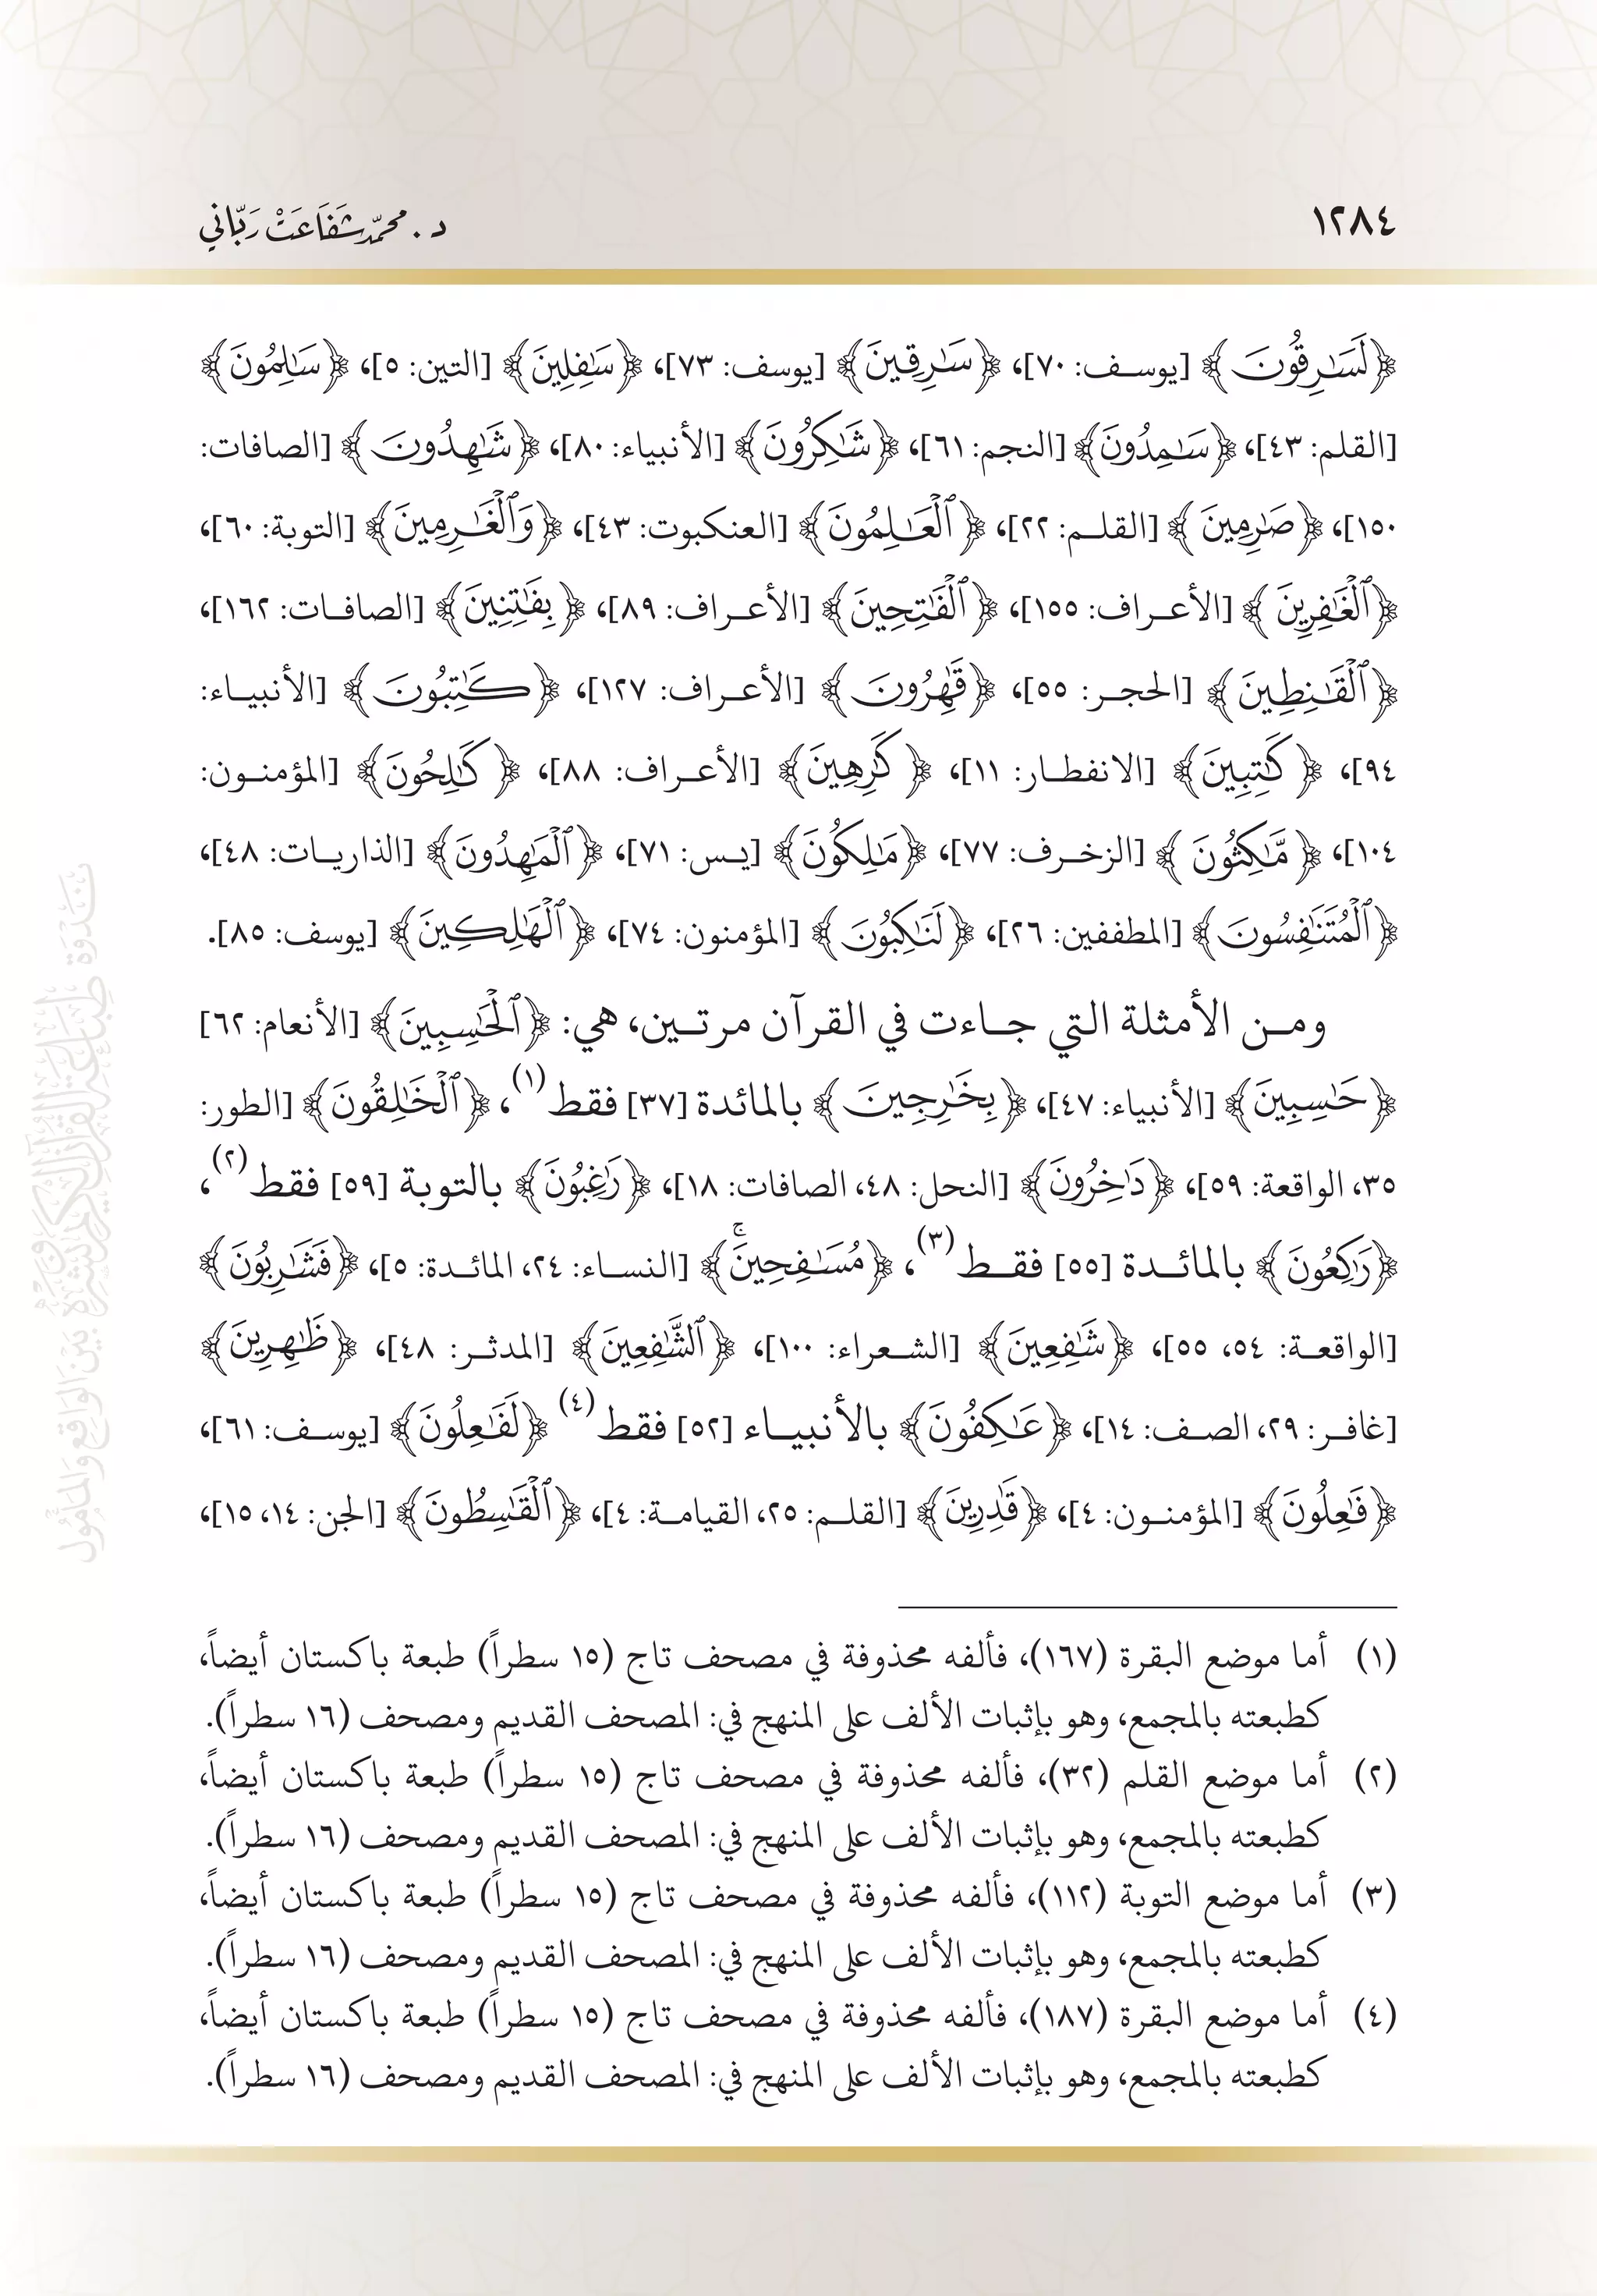 ١٢٨٤
د. محمّد شَفَاعَتْ رَبَّاني
﴿لَسَٰرِقُونَ﴾ [يوســف: ٧٠]، ﴿سَٰرِقِينَ﴾ [يوسف: ٧٣]، ﴿سَٰفِلِينَ﴾ [التين: ٥]، ﴿سَٰلِمُونَ﴾
[القلم: ٤٣]، ﴿سَٰمِدُونَ﴾ [النجم: ٦١]، ﴿شَٰكِرُونَ﴾ [الأنبياء: ٨٠]، ﴿شَٰهِدُونَ﴾ [الصافات:
١٥٠]، ﴿صَٰرِمِينَ﴾ [القلــم: ٢٢]، ﴿ٱلۡعَٰلِمُونَ﴾ [العنكبوت: ٤٣]، ﴿وَٱلۡغَٰرِمِينَ﴾ [التوبة: ٦٠]،
﴿ٱلۡغَٰفِرِينَ﴾ [الأعــراف: ١٥٥]، ﴿ٱلۡفَٰتِحِينَ﴾ [الأعــراف: ٨٩]، ﴿بِفَٰتِنِينَ﴾ [الصافــات: ١٦٢]،
﴿ٱلۡقَٰنِطِينَ﴾ [الحجــر: ٥٥]، ﴿قَٰهِرُونَ﴾ [الأعــراف: ١٢٧]، ﴿كَٰتِبُونَ﴾ [الأنبيــاء:
٩٤]، ﴿كَٰتِبِينَ﴾ [الانفطــار: ١١]، ﴿كَٰرِهِينَ﴾ [الأعــراف: ٨٨]، ﴿كَٰلِحُونَ﴾ [المؤمنــون:
١٠٤]، ﴿مَّٰكِثُونَ﴾ [الزخــرف: ٧٧]، ﴿مَٰلِكُونَ﴾ [يــس: ٧١]، ﴿ٱلۡمَٰهِدُونَ﴾ [الذاريــات: ٤٨]،
﴿ٱلۡمُتَنَٰفِسُونَ﴾ [المطففين: ٢٦]، ﴿لَنَٰكِبُونَ﴾ [المؤمنون: ٧٤]، ﴿ٱلۡهَٰلِكِينَ﴾ [يوسف: ٨٥].
ومــن الأمثلة التي جــاءت في القرآن مرتــين، هي: ﴿ٱلۡحَٰسِبِينَ﴾ [الأنعام: ٦٢]
﴿حَٰسِبِينَ﴾ [الأنبياء: ٤٧]، ﴿بِخَٰرِجِينَ﴾ بالمائدة [٣٧] فقط(١)، ﴿ٱلۡخَٰلِقُونَ﴾ [الطور:
٣٥، الواقعة: ٥٩]، ﴿دَٰخِرُونَ﴾ [النحل: ٤٨، الصافات: ١٨]، ﴿رَٰغِبُونَ﴾ بالتوبة [٥٩] فقط(٢)،
﴿رَٰكِعُونَ﴾ بالمائــدة [٥٥] فقــط(٣)، ﴿مُسَٰفِحِينَۚ﴾ [النســاء: ٢٤، المائــدة: ٥]، ﴿فَشَٰرِبُونَ﴾
[الواقعــة: ٥٤، ٥٥]، ﴿شَٰفِعِينَ﴾ [الشــعراء: ١٠٠]، ﴿ٱلشَّٰفِعِينَ﴾ [المدثــر: ٤٨]، ﴿ظَٰهِرِينَ﴾
[غافــر: ٢٩، الصــف: ١٤]، ﴿عَٰكِفُونَ﴾ بالأنبيــاء [٥٢] فقط(٤) ﴿لَفَٰعِلُونَ﴾ [يوســف: ٦١]،
﴿فَٰعِلُونَ﴾ [المؤمنــون: ٤]، ﴿قَٰدِرِينَ﴾ [القلــم: ٢٥، القيامــة: ٤]، ﴿ٱلۡقَٰسِطُونَ﴾ [الجن: ١٤، ١٥]،
(١) أما موضع البقرة (١٦٧)، فألفه محذوفة في مصحف تاج (١٥ سطراً) طبعة باكستان أيضاً،
كطبعته بالمجمع، وهو بإثبات الألف على المنهج في: المصحف القديم ومصحف (١٦ سطراً).
(٢) أما موضع القلم (٣٢)، فألفه محذوفة في مصحف تاج (١٥ سطراً) طبعة باكستان أيضاً،
كطبعته بالمجمع، وهو بإثبات الألف على المنهج في: المصحف القديم ومصحف (١٦ سطراً).
(٣) أما موضع التوبة (١١٢)، فألفه محذوفة في مصحف تاج (١٥ سطراً) طبعة باكستان أيضاً،
كطبعته بالمجمع، وهو بإثبات الألف على المنهج في: المصحف القديم ومصحف (١٦ سطراً).
(٤) أما موضع البقرة (١٨٧)، فألفه محذوفة في مصحف تاج (١٥ سطراً) طبعة باكستان أيضاً،
كطبعته بالمجمع، وهو بإثبات الألف على المنهج في: المصحف القديم ومصحف (١٦ سطراً).
نَدْوَة طِبَاعَةِ القُرْآنِ الكَرِيمِ وَنَشْرِهِ بَيْنَ الوَاقِعِ وَالمَأْمُول